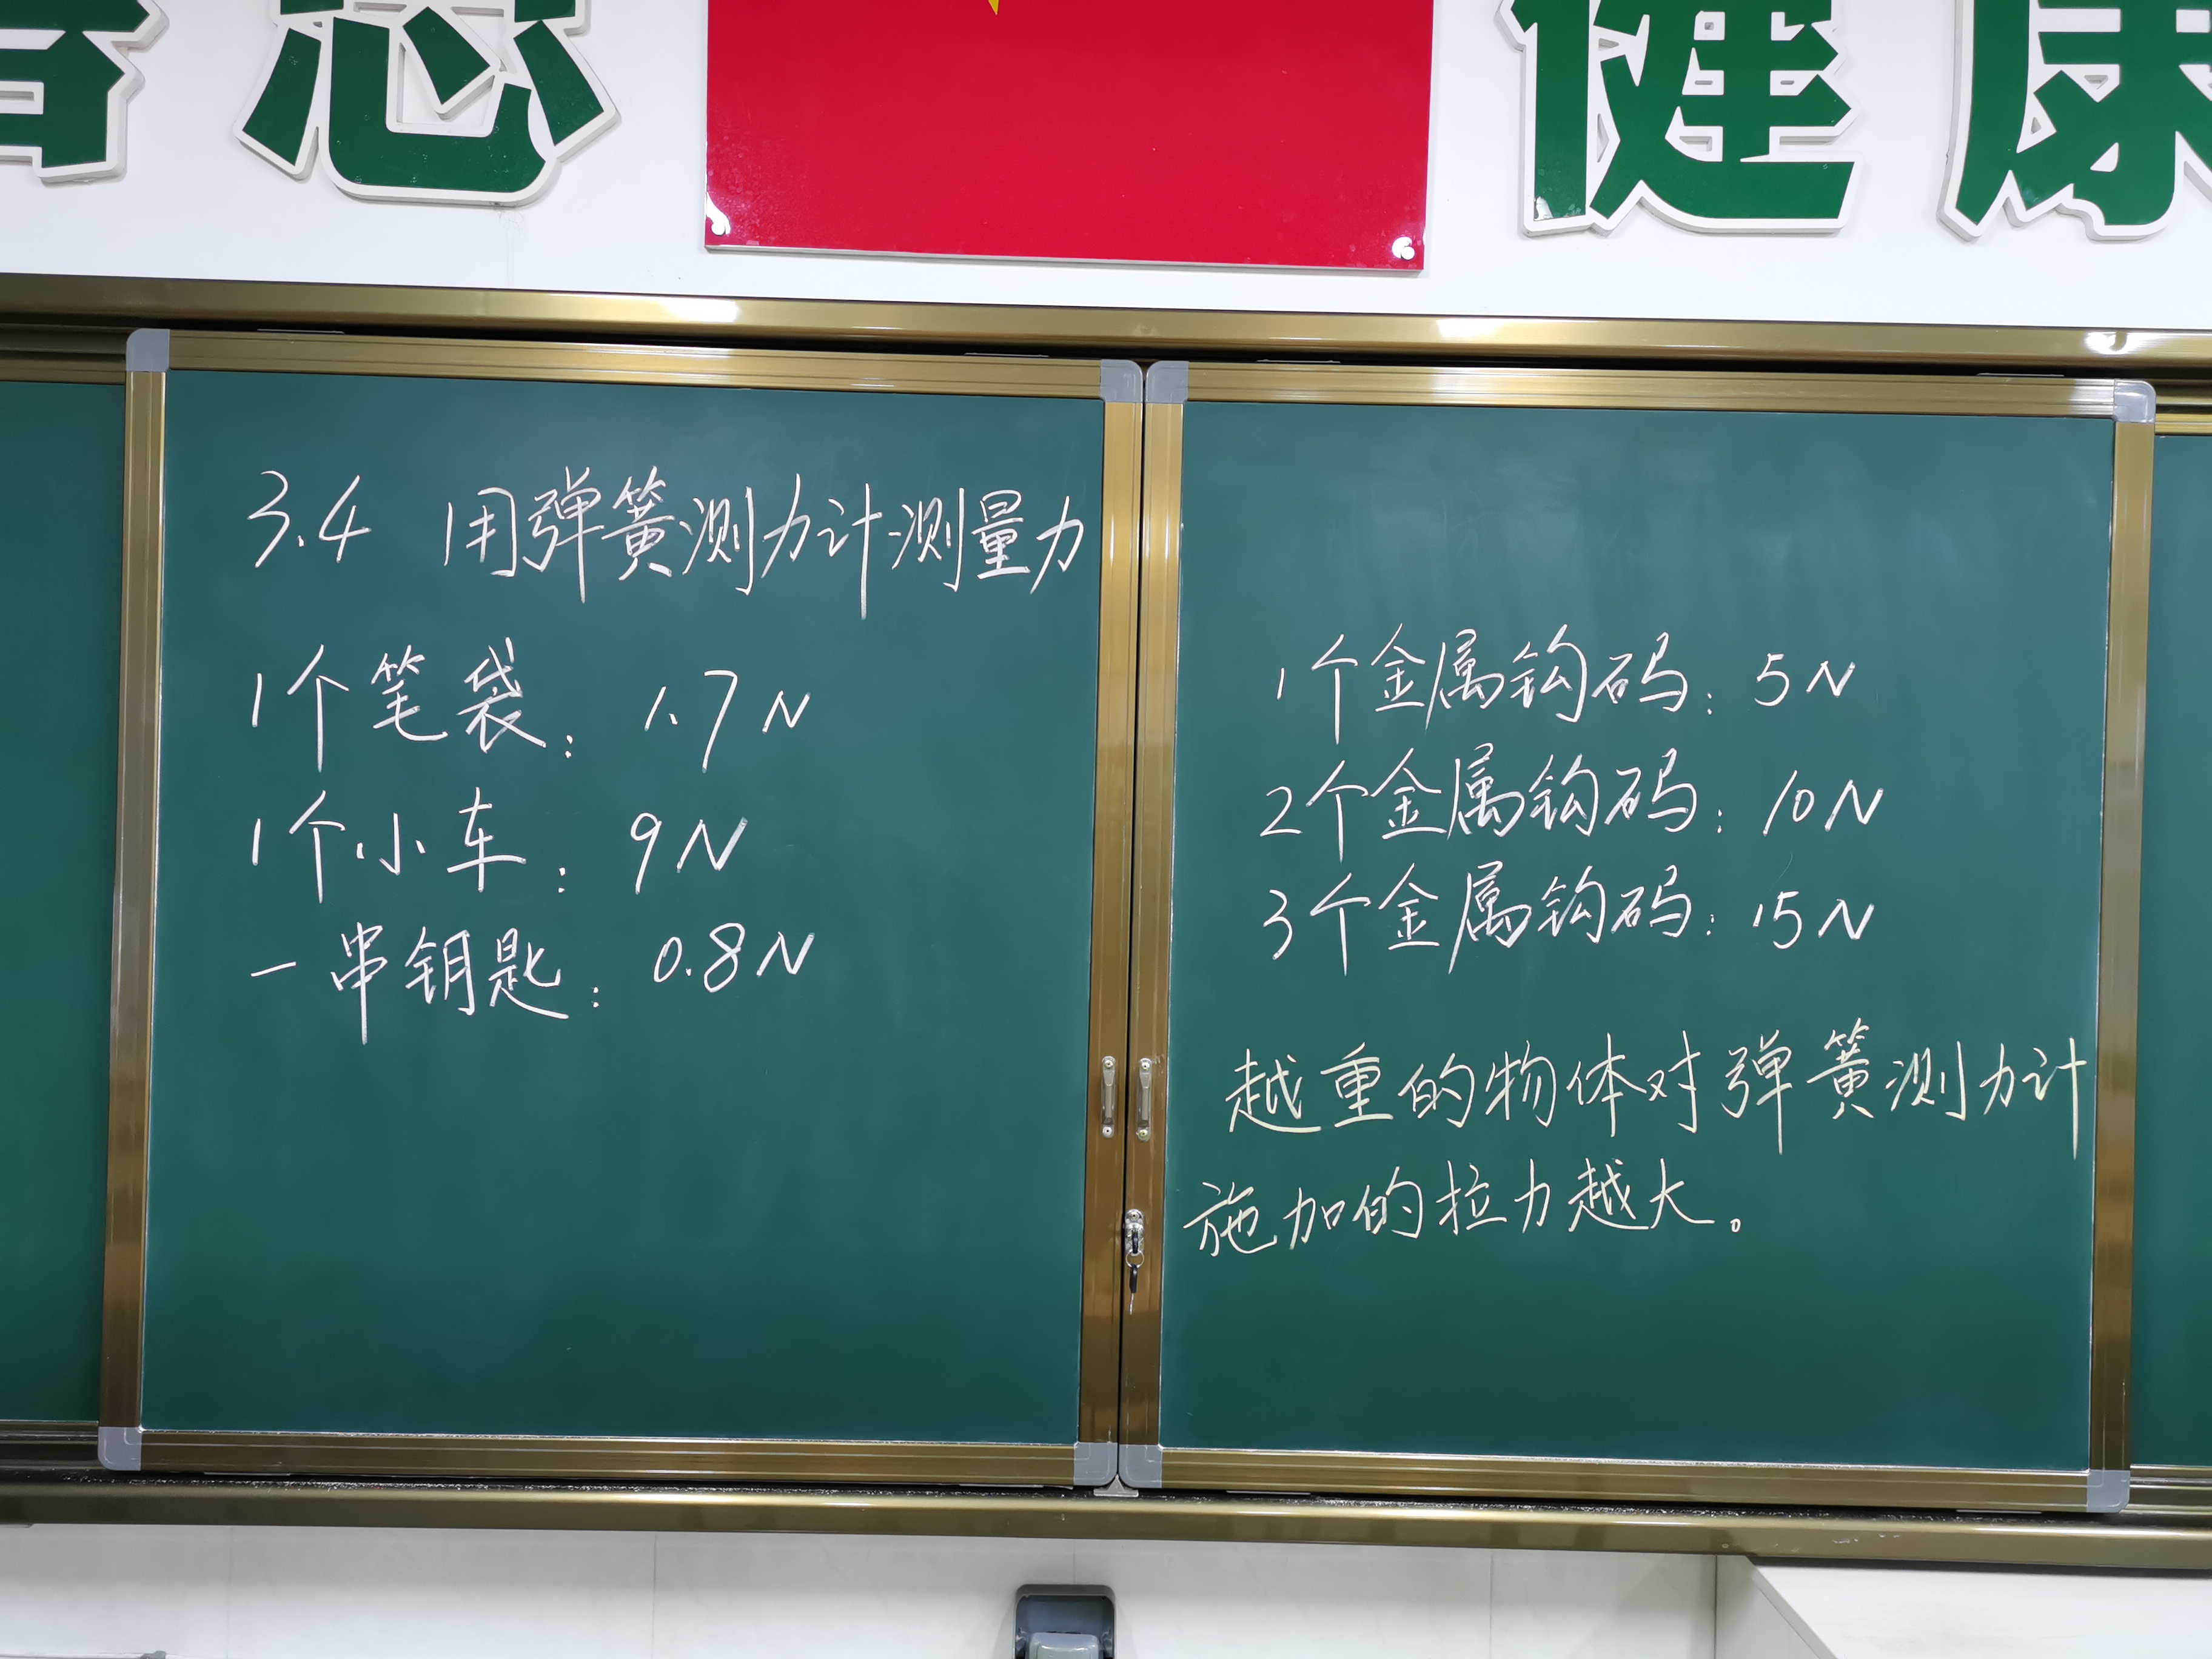 健康
3.4 用弹簧测力计测量力
1个笔袋：1.7N
1个小车：9N
一串钥匙：0.8N
1个金属钩码：5N
2个金属钩码：10N
3个金属钩码：15N
越重的物体对弹簧测力计
施加的拉力越大。